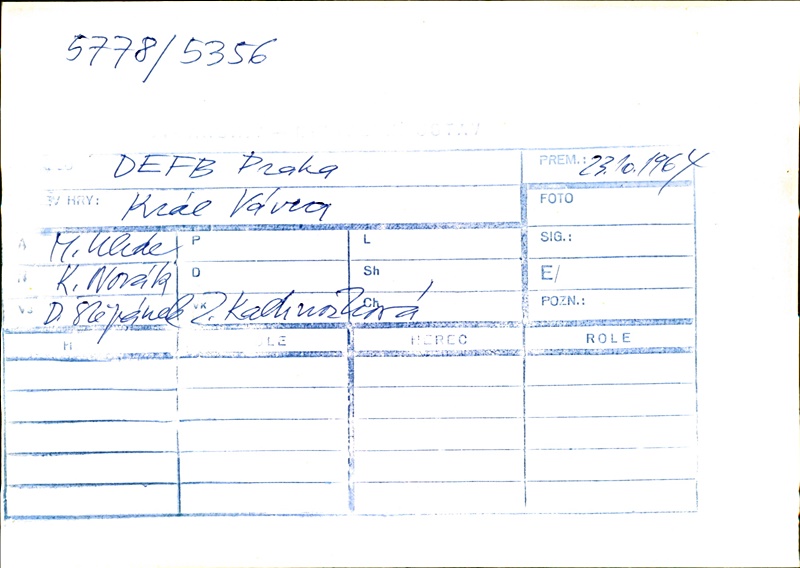 5778/5356
DEFB Praha PREM.: 23.10.1964
HRY: Král Vávra FOTO
A M. Uhde P L SIG.:
K. Novák D Sh E/
D. Štěpánek VK Z. Kadrnožková Ch POZN.:
H HEREC ROLE